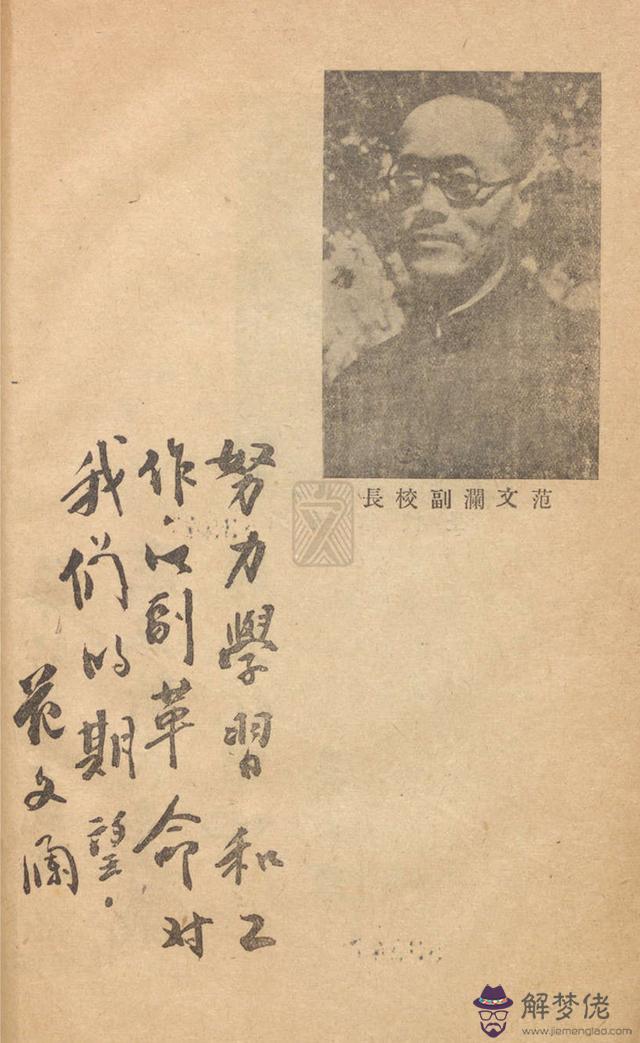 范文瀾副校長
努力學習和工
作，以副革命对
我們的期望．
范文瀾
解梦佬
www.jiemenglao.com